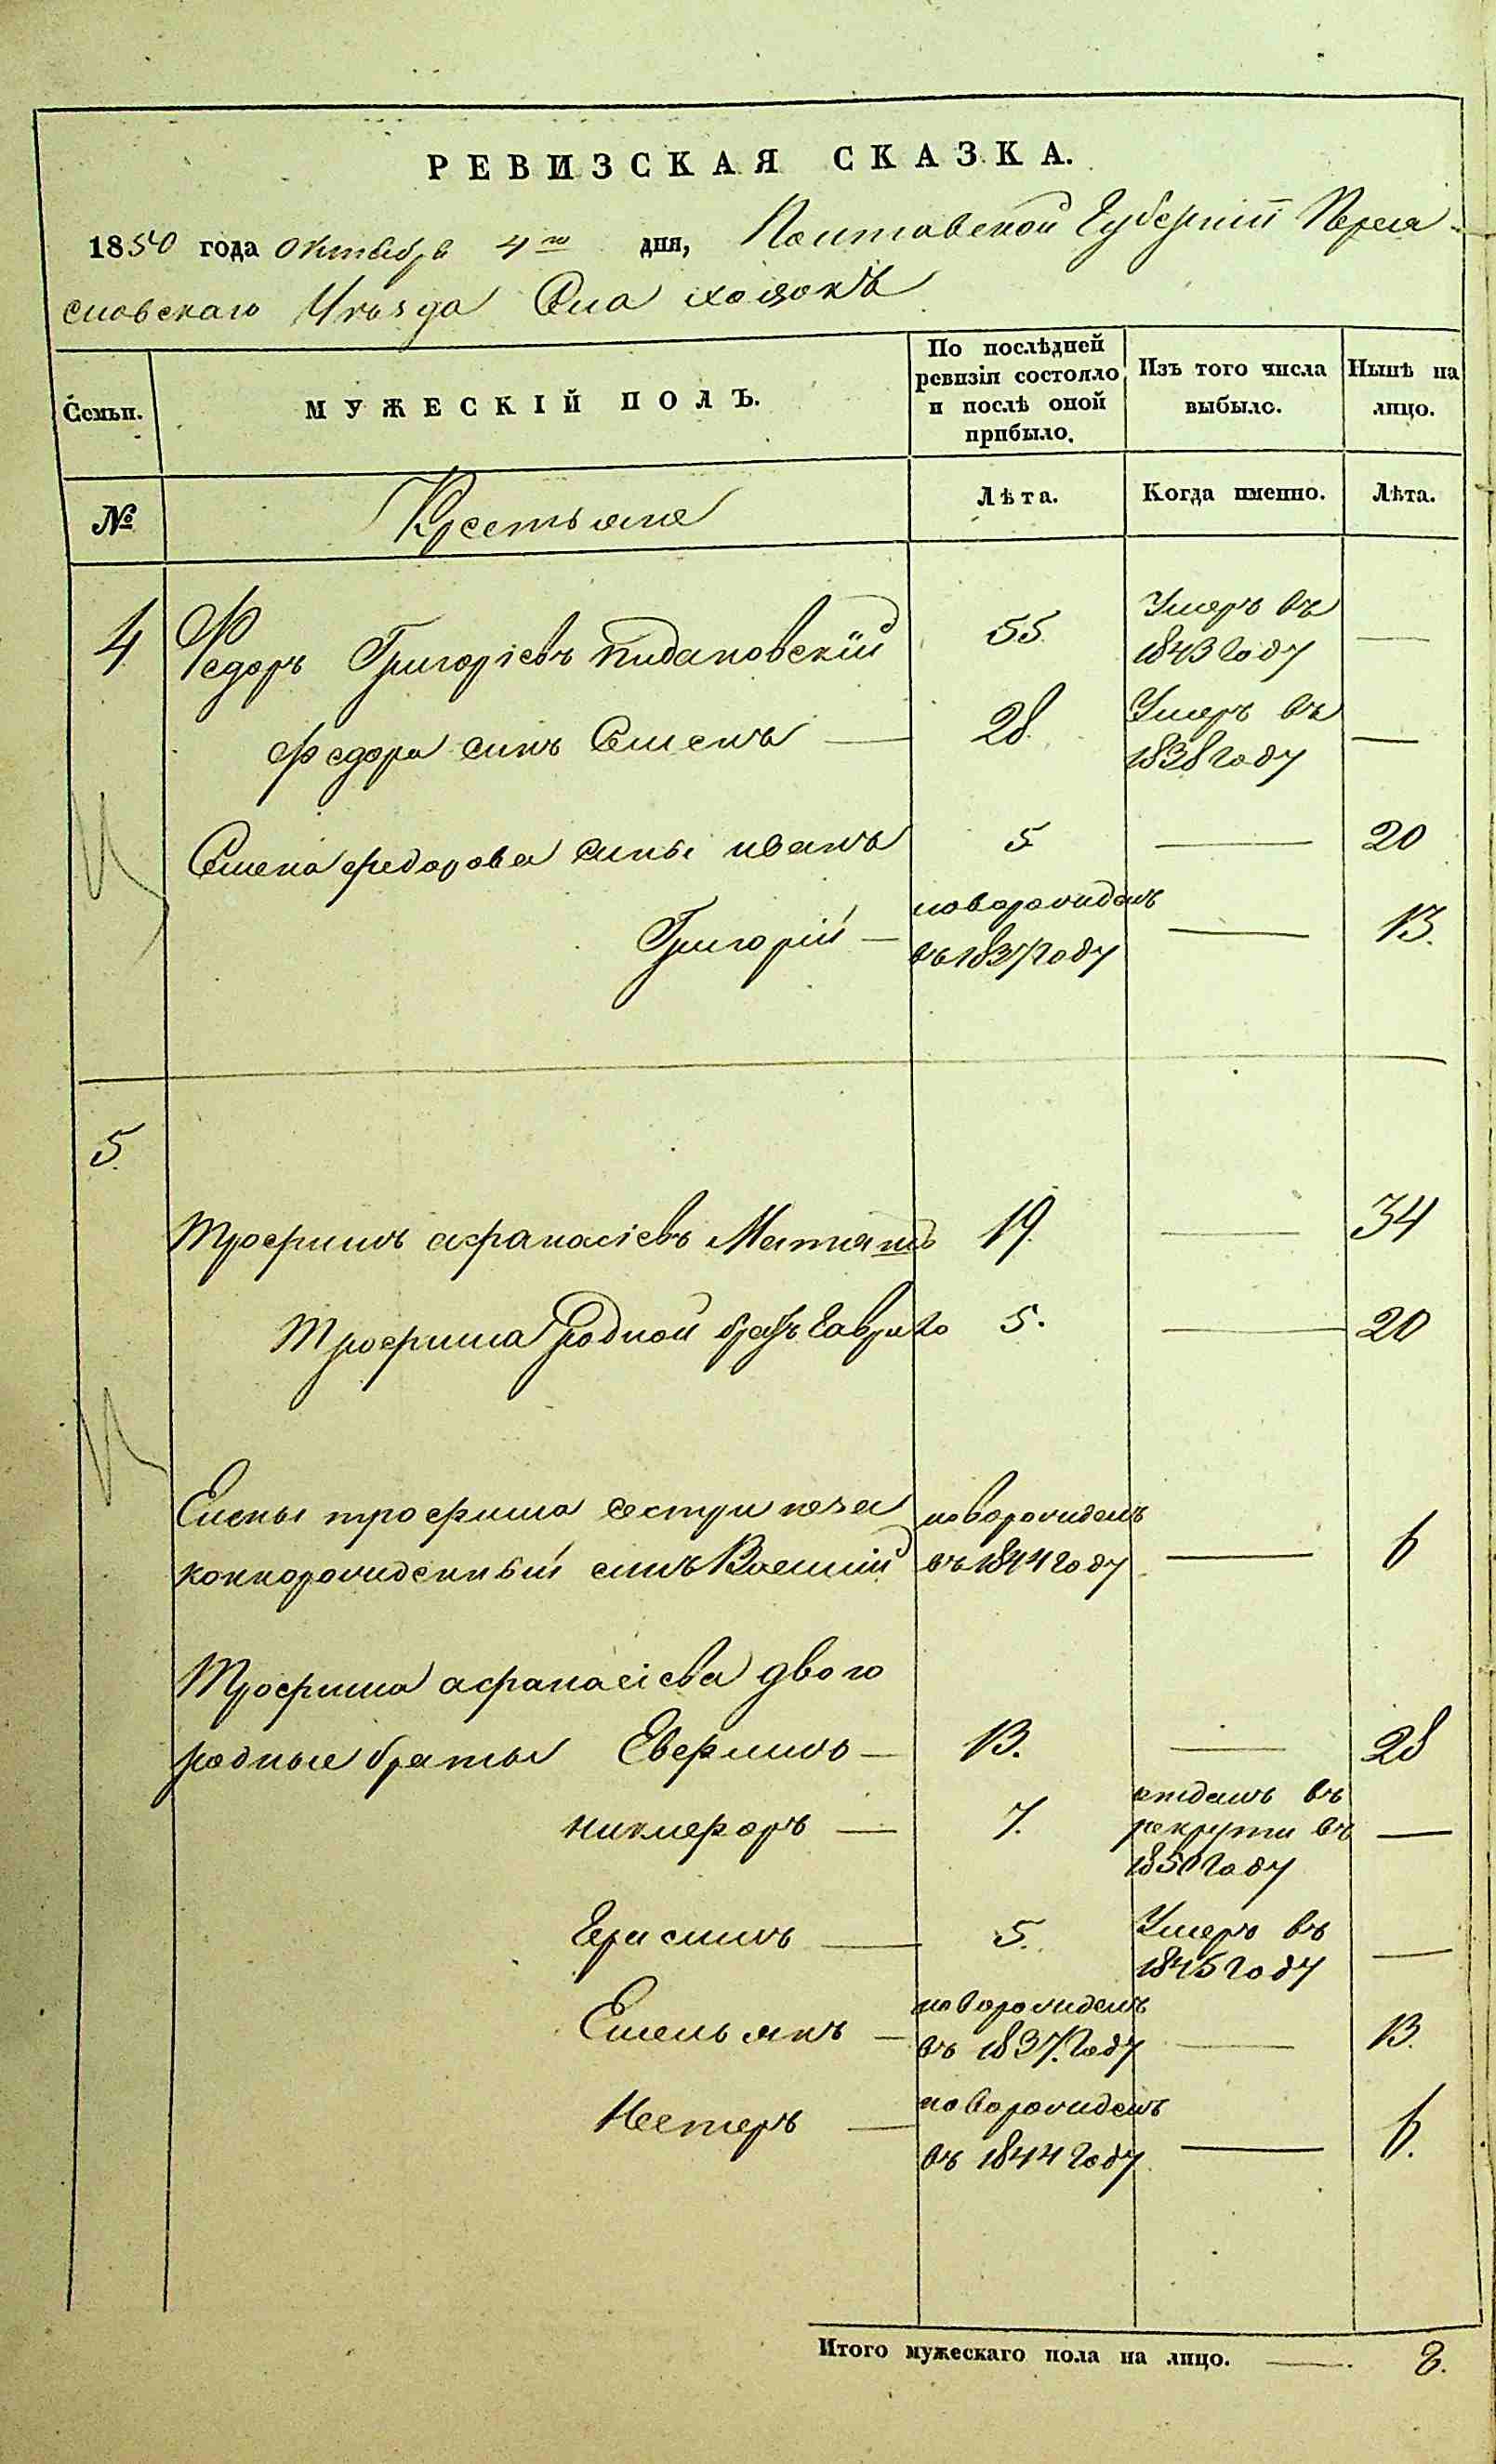 РЕВИЗСКАЯ СКАЗКА.
1850 года Октября 4го дня, Полтавской Губернии Перея
словскаго Уезда Села Хоцокъ
Семьи.
МУЖЕСКІЙ ПОЛЪ.
По послѣдней
ревизіи состояло
и послѣ оной
прибыло.
Изъ того числа
выбыло.
Нынѣ на
лицо.
№
Крестьяне
Лѣта.
Когда именно.
Лѣта.
4
Федоръ Григоріевъ
55.
Умеръ въ
1843 году
—
Федора синъ Семенъ —
28.
Умеръ въ
1838 году
—
Семена федорова сины иванъ
5
—
20
Григорій —
новорожденъ
въ 1837 году
—
13.
5.
Трофимъ афанасіевъ
19.
—
34
Трофима родной братъ Гаврило
5.
—
20
Елены трофима сестри неза
коннорожденный синъ Василий
новорожденъ
въ 1844 году
—
6
Трофима афанасіева двою
родные браты Евфимъ —
13.
—
28
никифоръ —
7.
отданъ въ
рекрути въ
1850 году
—
Герасимъ —
5.
Умеръ въ
1845 году
—
Емельянъ —
новорожденъ
въ 1837. году
—
13.
Нестеръ —
новорожденъ
въ 1844 году
—
6.
Итого мужескаго пола на лицо. — 8.